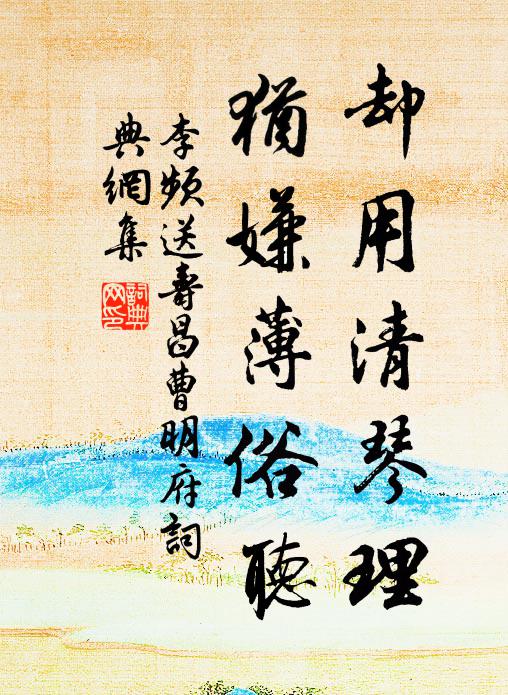 却用清琴理
猶嫌薄俗聽
李頻送壽昌曹明府詞
典網集
詞典網印